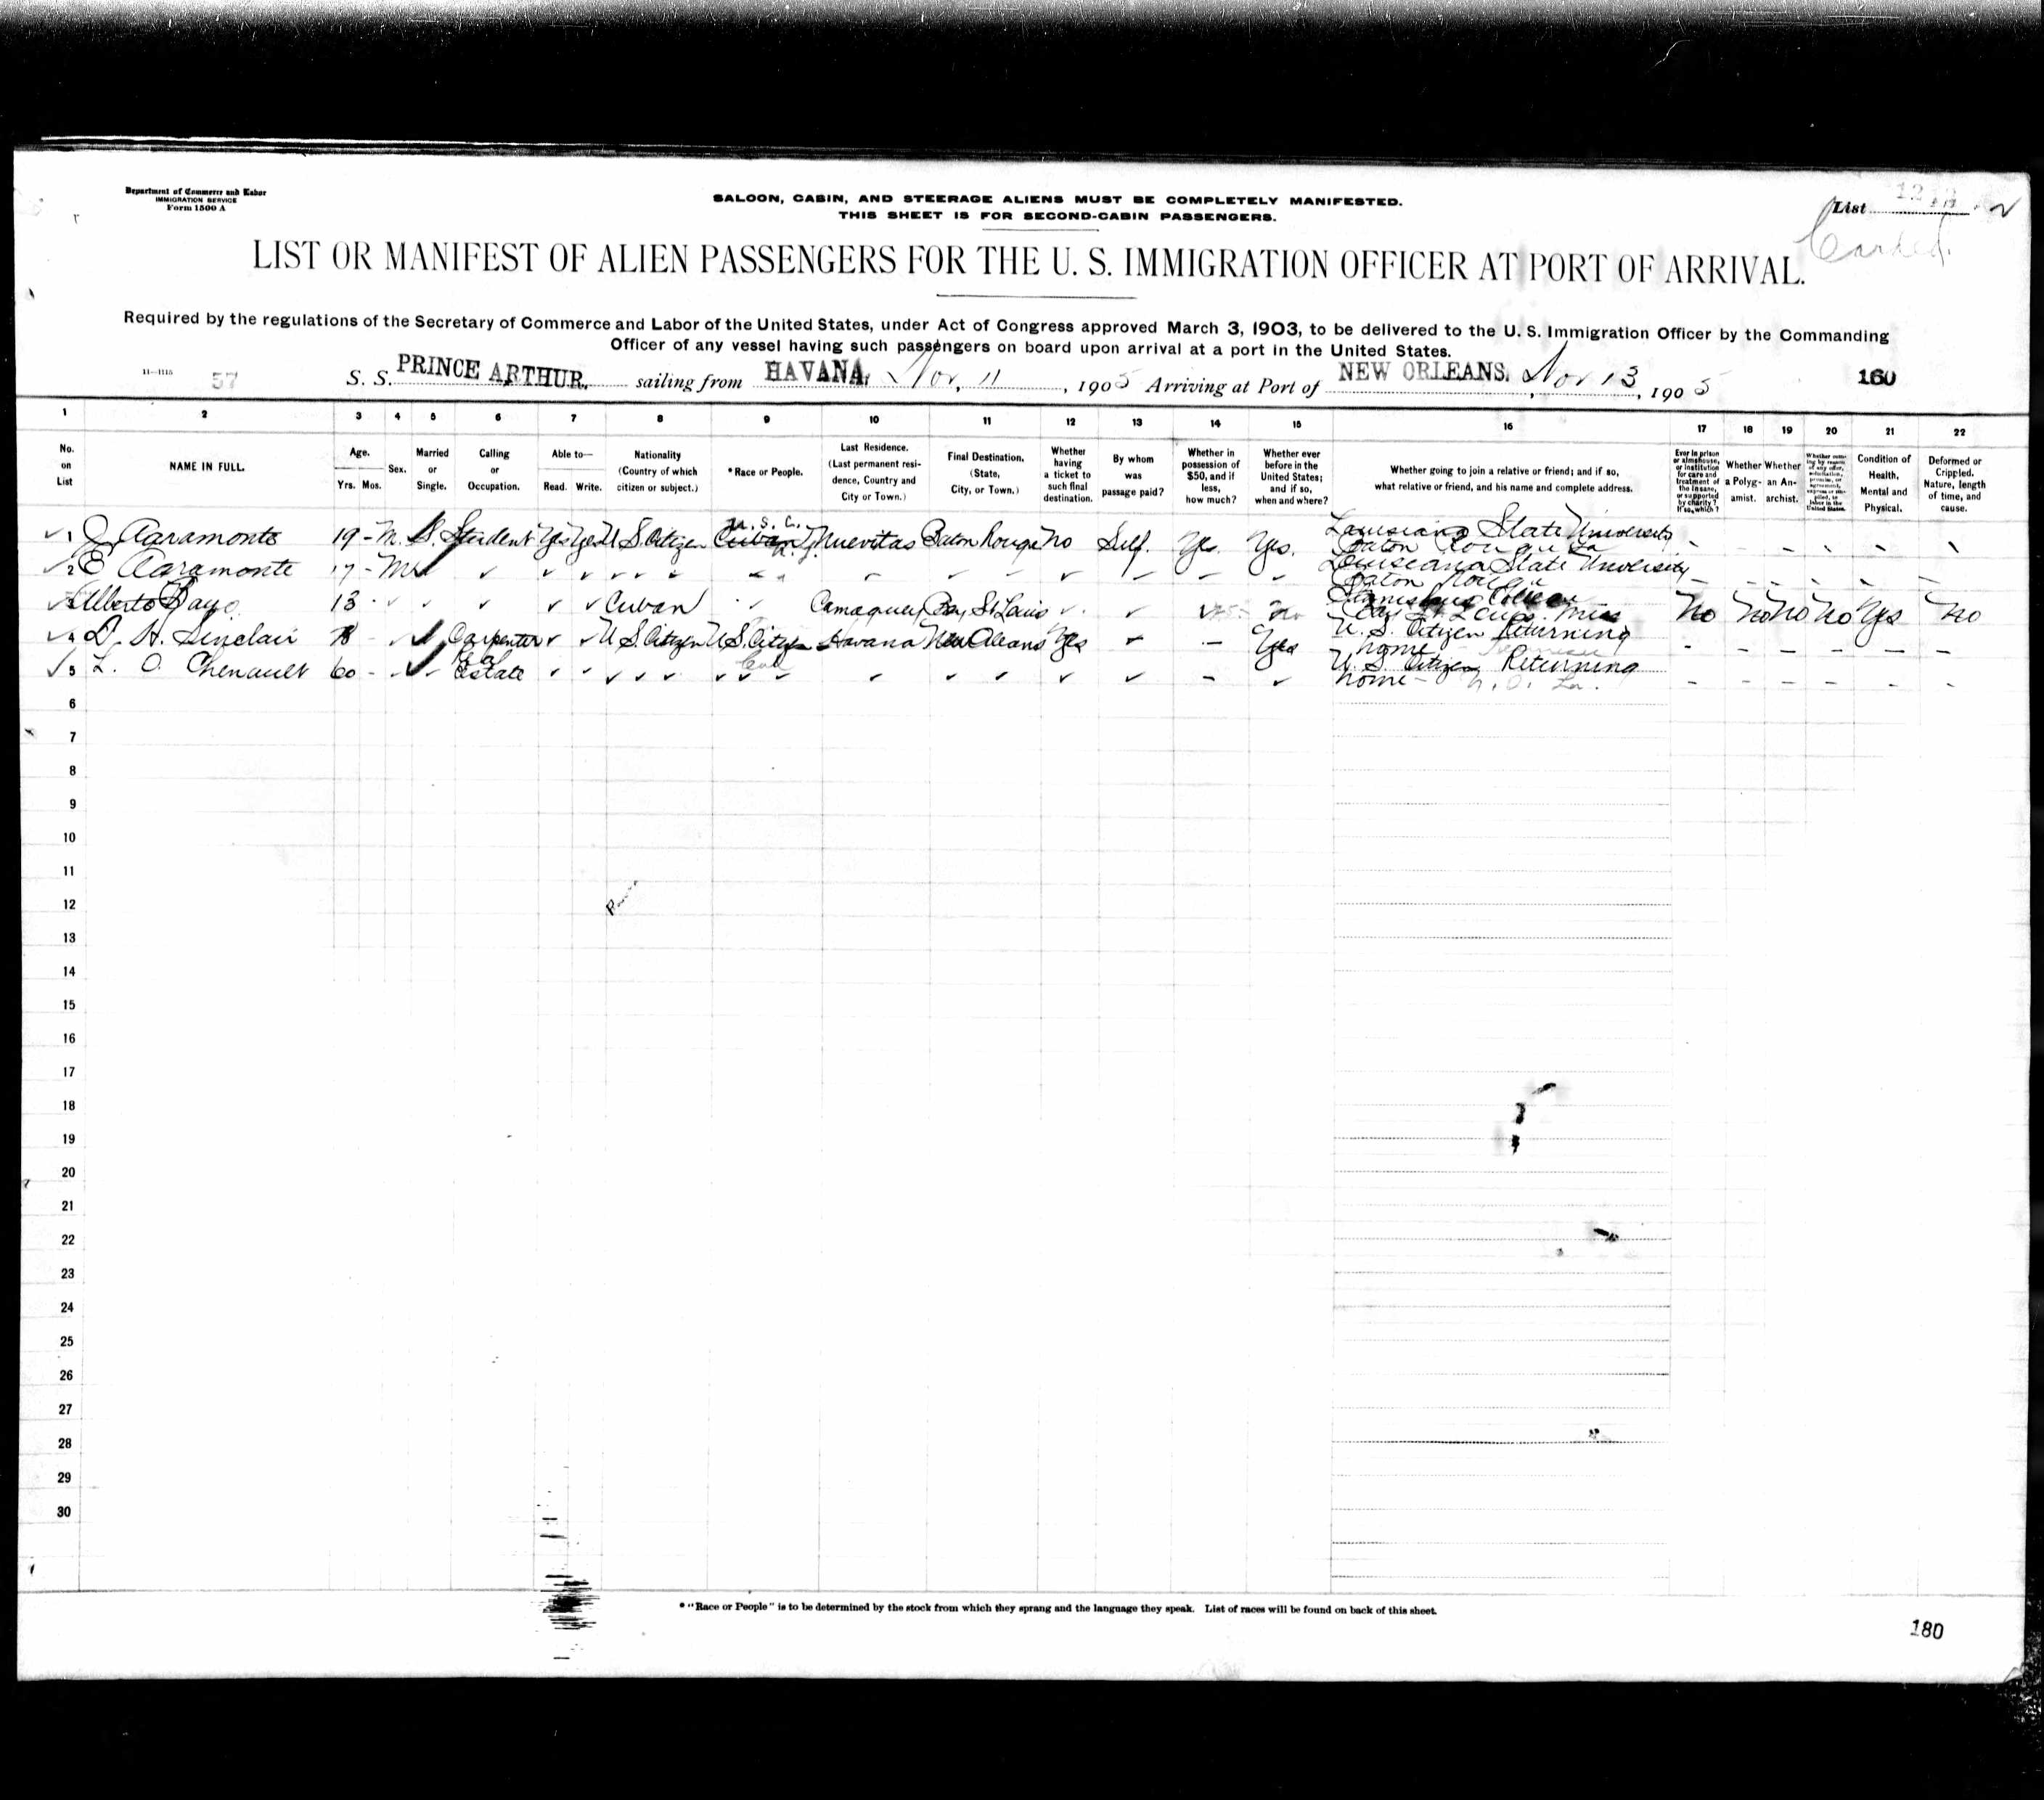 Department of Commerce and Labor
IMMIGRATION SERVICE
Form 1500 A
SALOON, CABIN, AND STEERAGE ALIENS MUST BE COMPLETELY MANIFESTED.
THIS SHEET IS FOR SECOND-CABIN PASSENGERS.
List
LIST OR MANIFEST OF ALIEN PASSENGERS FOR THE U. S. IMMIGRATION OFFICER AT PORT OF ARRIVAL.
Required by the regulations of the Secretary of Commerce and Labor of the United States, under Act of Congress approved March 3, 1903, to be delivered to the U. S. Immigration Officer by the Commanding
Officer of any vessel having such passengers on board upon arrival at a port in the United States.
11—1115 57 S. S. PRINCE ARTHUR. sailing from HAVANA, Nov, 11, 1905 Arriving at Port of NEW ORLEANS. Nov 13, 1905 160
1 2 3 4 5 6 7 8 9 10 11 12 13 14 15 16 17 18 19 20 21 22
No. on List
NAME IN FULL.
Age.
Yrs. Mos.
Sex.
Married or Single.
Calling or Occupation.
Able to—
Read. Write.
Nationality (Country of which citizen or subject.)
*Race or People.
Last Residence. (Last permanent residence, Country and City or Town.)
Final Destination. (State, City, or Town.)
Whether having a ticket to such final destination.
By whom was passage paid?
Whether in possession of $50, and if less, how much?
Whether ever before in the United States; and if so, when and where?
Whether going to join a relative or friend; and if so, what relative or friend, and his name and complete address.
Ever in prison or almshouse, or institution for care and treatment of the insane, or supported by charity? If so, which?
Whether a Polygamist.
Whether an Anarchist.
Condition of Health, Mental and Physical.
Deformed or Crippled. Nature, length of time, and cause.
1 J. Aaramonte 19 - M. S. Student Yes Yes U S. Citizen U. S. C. Cuban Nuevitas Baton Rouge No Self. Yes. Yes. Louisiana State University
Baton Rouge La
2 E Aaramonte 17 - M Louisiana State University
Baton Rouge
3 Alberto Bayo 13 Cuban Camaguey Bay St Louis no Stanislaus College
Bay St Louis Miss No No No No Yes No
4 D. H. Sinclair Carpenter U S. Citizen U S. Citizen Havana New Orleans Yes - Yes U. S. Citizen Returning
home
5 L. O. Chenault 60 - Estate U. S. Citizen Returning
home - N. O. La.
6
7
8
9
10
11
12
13
14
15
16
17
18
19
20
21
22
23
24
25
26
27
28
29
30
* "Race or People" is to be determined by the stock from which they sprang and the language they speak. List of races will be found on back of this sheet.
180